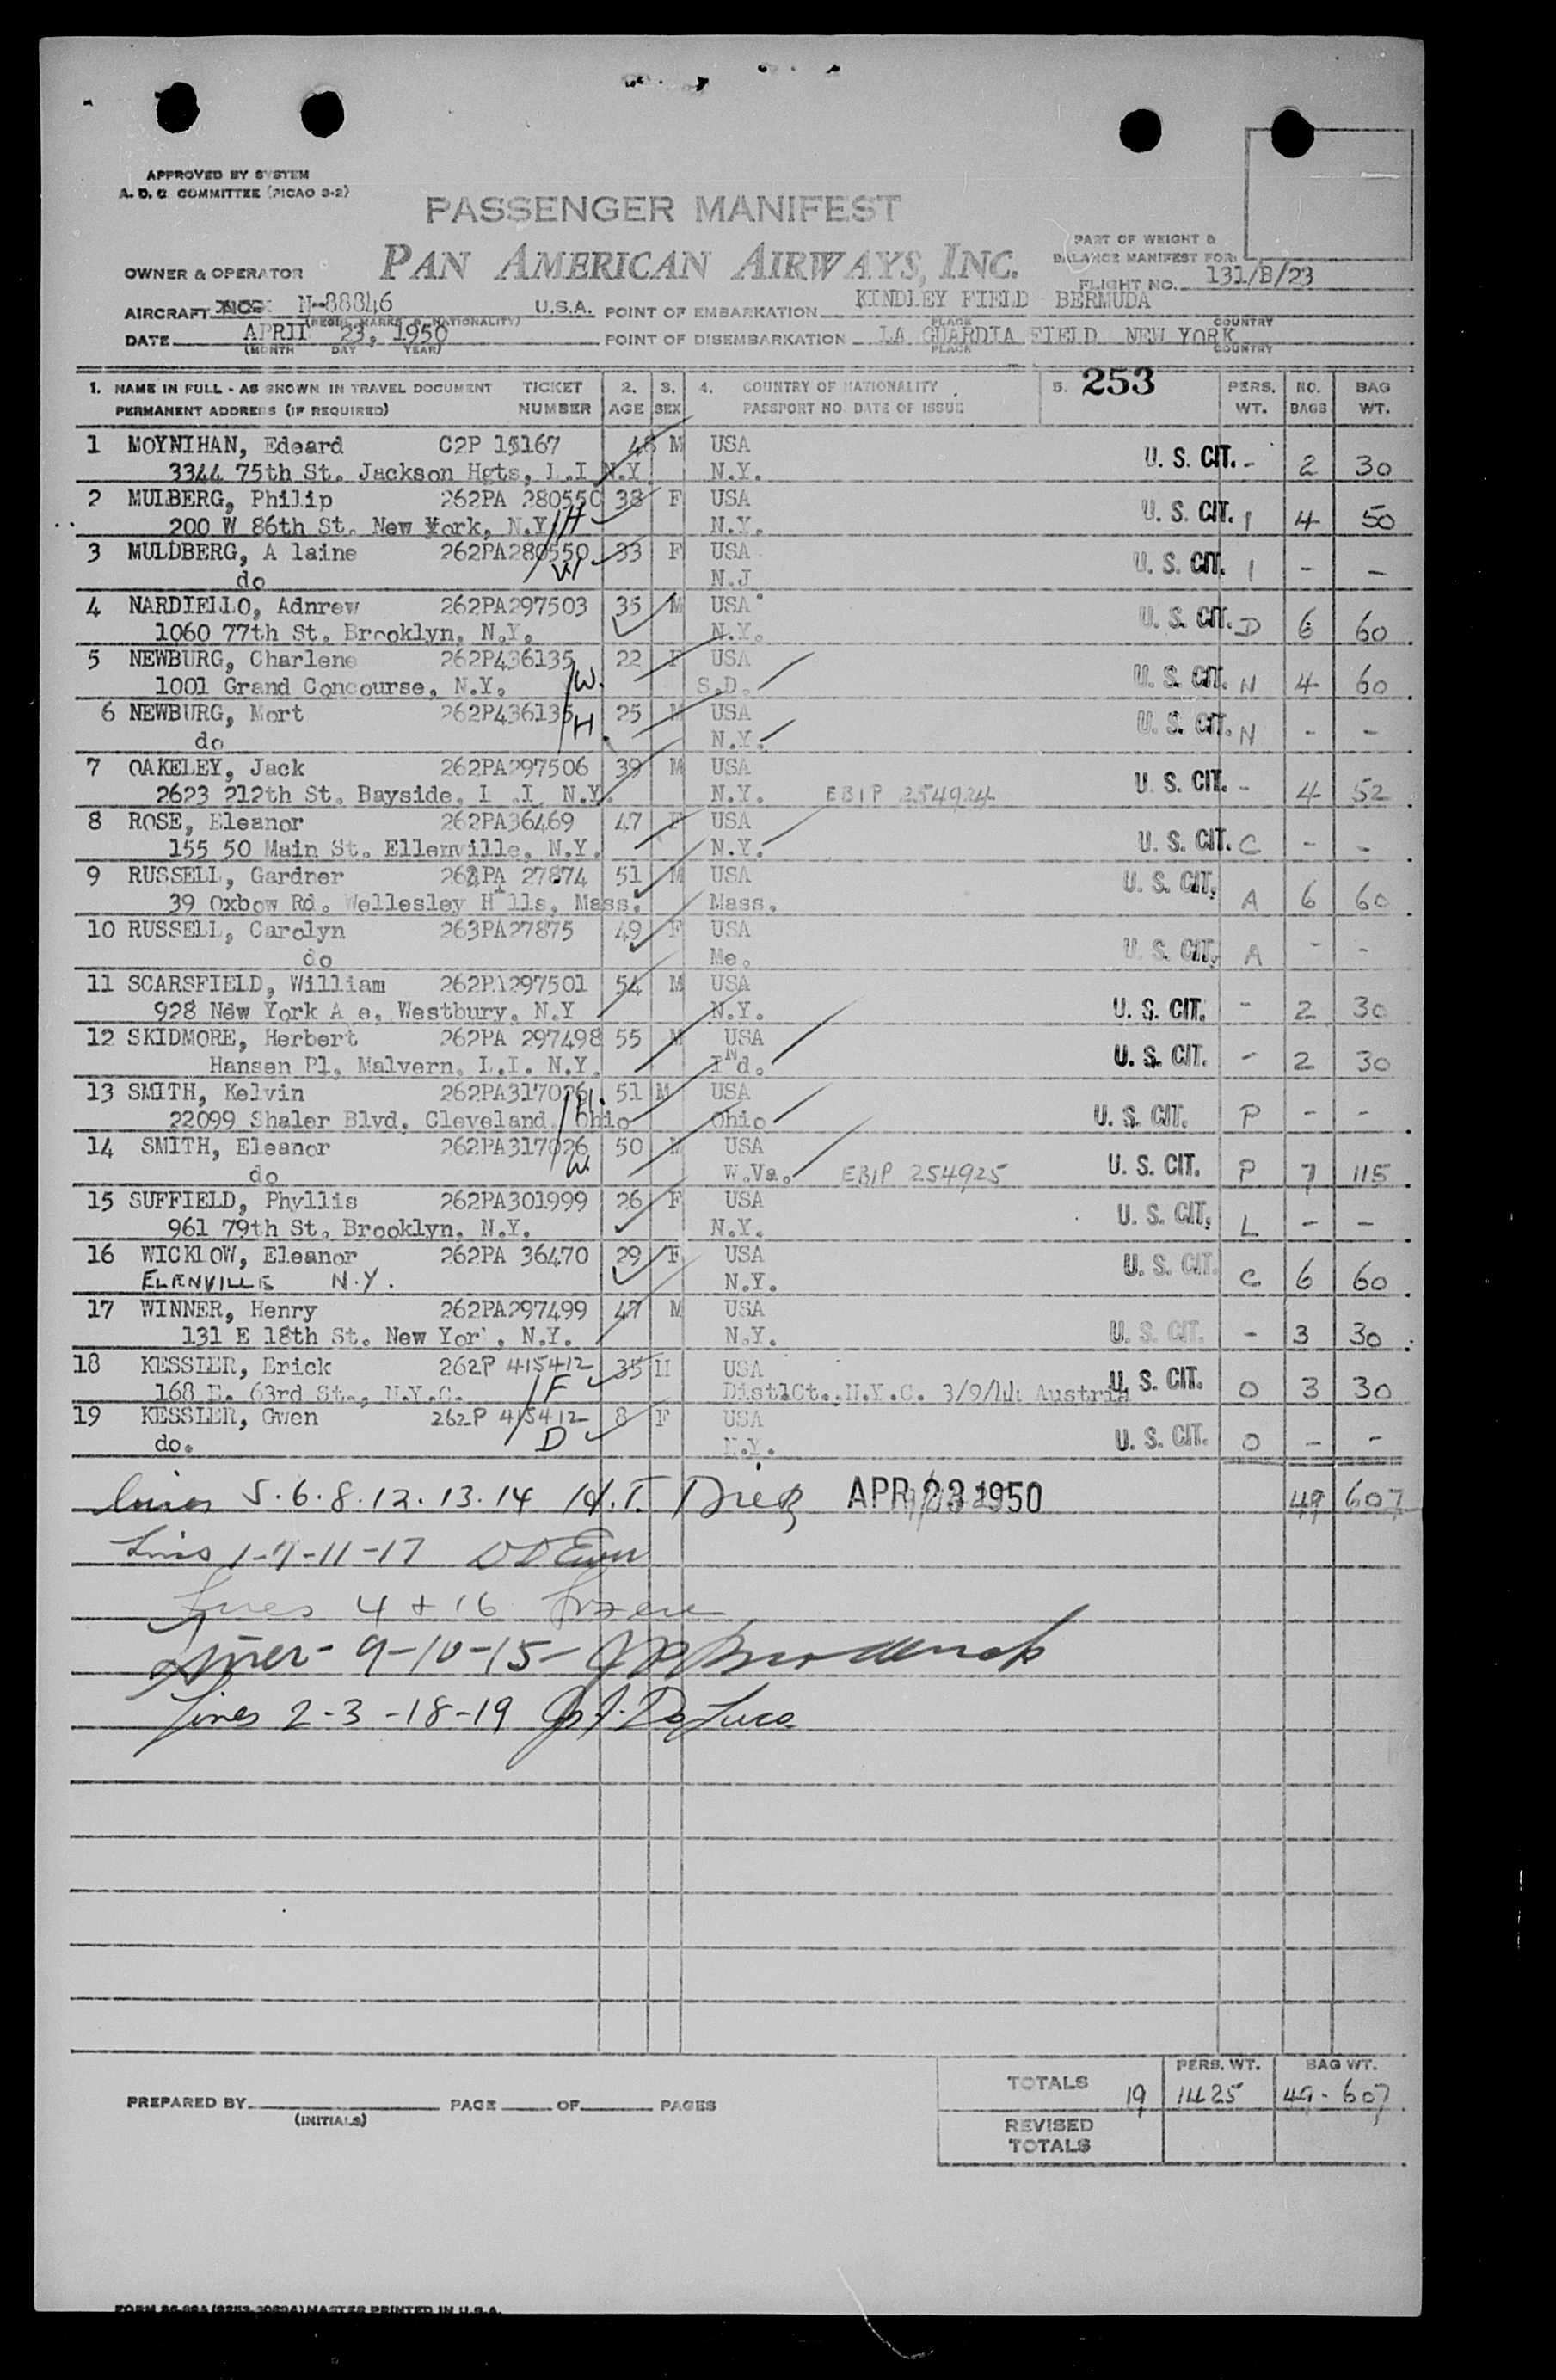 APPROVED BY SYSTEM
A. D. C. COMMITTEE (PICAO 3-2)
PASSENGER MANIFEST
PAN AMERICAN AIRWAYS, INC.
PART OF WEIGHT &
BALANCE MANIFEST FOR:
OWNER & OPERATOR
FLIGHT NO. 131/B/23
AIRCRAFT N-88846 U.S.A. POINT OF EMBARKATION KINDLEY FIELD BERMUDA
(REGIS. MARKS & NATIONALITY) PLACE COUNTRY
DATE APRIL 23, 1950 POINT OF DISEMBARKATION LA GUARDIA FIELD NEW YORK
(MONTH DAY YEAR) PLACE COUNTRY
1. NAME IN FULL - AS SHOWN IN TRAVEL DOCUMENT TICKET 2. 3. 4. COUNTRY OF NATIONALITY 5. 253 PERS. NO. BAG
PERMANENT ADDRESS (IF REQUIRED) NUMBER AGE SEX PASSPORT NO. DATE OF ISSUE WT. BAGS WT.
1 MOYNIHAN, Edeard C2P 15167 48 M USA
3344 75th St. Jackson Hgts, L.I N.Y. N.Y. U. S. CIT. - 2 30
2 MULBERG, Philip 262PA 280550 38 F USA
200 W 86th St. New York, N.Y. H N.Y. U. S. CIT. 1 4 50
3 MULDBERG, A laine 262PA280550 33 F USA
do W N.J U. S. CIT. 1 - -
4 NARDIELLO, Adnrew 262PA297503 35 M USA
1060 77th St. Brooklyn, N.Y. N.Y. U. S. CIT. D 6 60
5 NEWBURG, Charlene 262P436135 22 F USA
1001 Grand Concourse, N.Y. W. S.D. U. S. CIT. N 4 60
6 NEWBURG, Mort 262P436135 25 M USA
do H N.Y. U. S. CIT. N - -
7 OAKELEY, Jack 262PA297506 39 M USA
2623 212th St. Bayside, L .I. N.Y. N.Y. EBIP 254924 U. S. CIT. - 4 52
8 ROSE, Eleanor 262PA36469 47 F USA
155 50 Main St. Ellenville, N.Y. N.Y. U. S. CIT. C - -
9 RUSSELL, Gardner 27874 51 M USA
39 Oxbow Rd. Wellesley H lls, Mass. Mass. U. S. CIT. A 6 60
10 RUSSELL, Carolyn 263PA27875 49 F USA
do Me. U. S. CIT. A - -
11 SCARSFIELD, William 262PA297501 54 M USA
928 New York A e, Westbury, N.Y N.Y. U. S. CIT. - 2 30
12 SKIDMORE, Herbert 262PA 297498 55 M USA
Hansen Pl, Malvern, L.I. N.Y. Ind. U. S. CIT. - 2 30
13 SMITH, Kelvin 262PA317026 51 M USA
22099 Shaler Blvd, Cleveland, Ohio H. Ohio U. S. CIT. P - -
14 SMITH, Eleanor 262PA317026 50 M USA
do W. W.Va. EBIP 254925 U. S. CIT. P 7 115
15 SUFFIELD, Phyllis 262PA301999 26 F USA
961 79th St. Brooklyn, N.Y. N.Y. U. S. CIT. L - -
16 WICKLOW, Eleanor 262PA 36470 29 F USA
ELENVILLE N.Y. N.Y. U. S. CIT. C 6 60
17 WINNER, Henry 262PA297499 47 M USA
131 E 18th St. New Yor , N.Y. N.Y. U. S. CIT. - 3 30
18 KESSLER, Erick 262P 415412 35 M USA
168 E. 63rd St., N.Y.C. F Dist.Ct., N.Y.C. 3/9/44 Austria U. S. CIT. O 3 30
19 KESSLER, Gwen 262P 415412 8 F USA
do. D N.Y. U. S. CIT. O - -
Lines 5.6.8.12.13.14 H.T. Dietz APR 23 1950 49 607
Lines 1-7-11-17
Lines 4 + 16
Lines - 9-10-15 -
Lines 2-3-18-19 De Luca
TOTALS 19 PERS. WT. 1425 BAG WT. 49 - 607
PREPARED BY (INITIALS) PAGE OF PAGES
REVISED
TOTALS